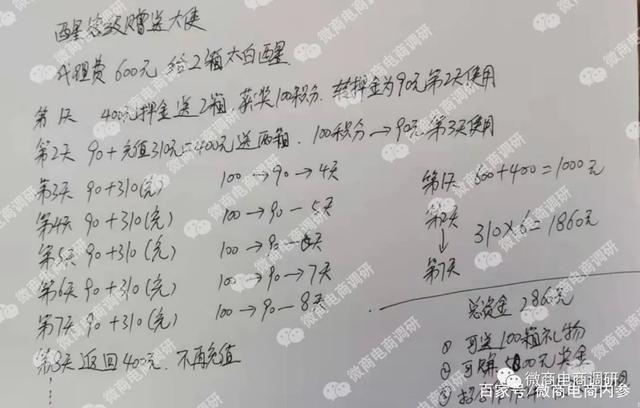 酒星
赠送大使
代理费600元 给2箱太白酒星
第1天 400元押金送2箱,获奖100积分,转押金为90元第2天使用
第2天 90+充值310元=400元送两箱.100积分→90元第3天使用
第3天 90+310(充) 100→90→4天
第4天 90+310(充) 100→90-5天
第5天 90+310(充) 100→90-6天
第6天 90+310(充) 100→90→7天
第7天 90+310(充) 100→90-8天
返回400元.不再充值
第1天 600+400=1000元
第2天
↓
第7天
310×6=1860元
总资金 2860元
① 可送100箱礼物
② 可赚
元奖金
③
微商电商调研
百家号/微商电商内参